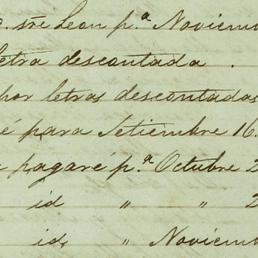 sre Leon p.ª Noviem
letra descontada .
por letras descontadas
é para Setiembre 16.
pagare p.ª Octubre 2
id " " 2
id, " Noviem